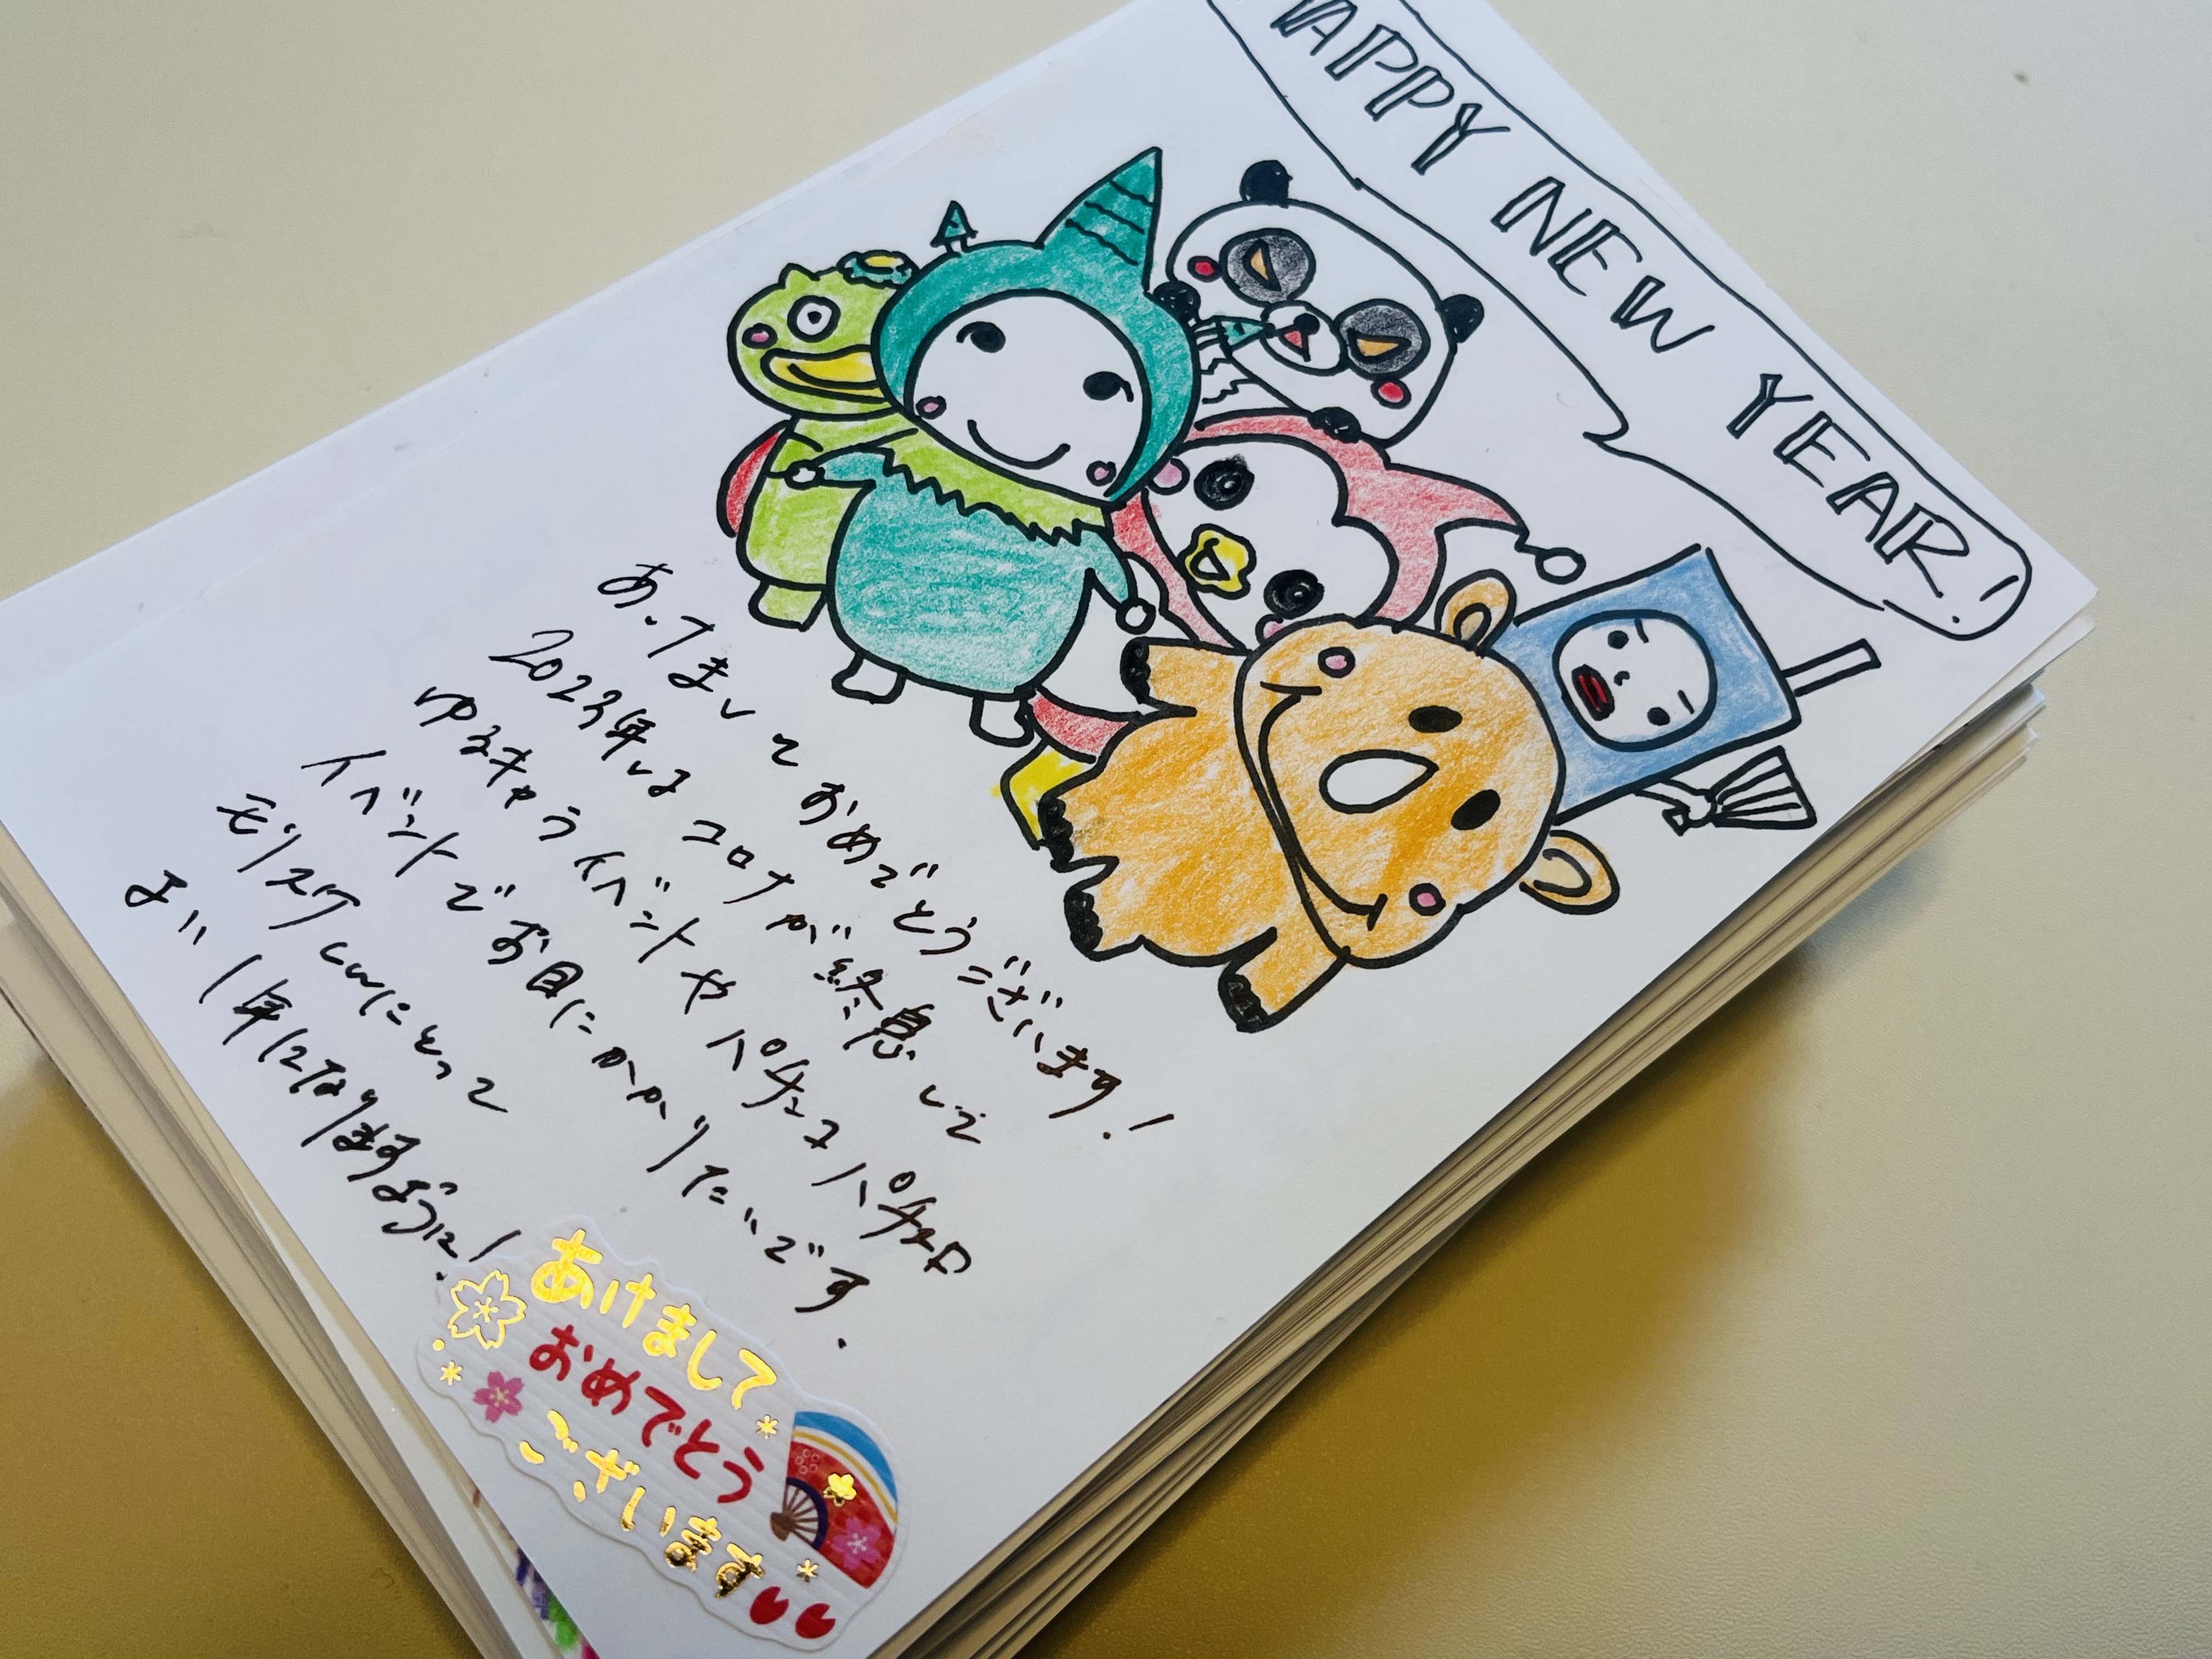 HAPPY NEW YEAR!
あけましておめでとうございます!
2023年はコロナが終息して
ゆるキャライベントやパチュスパチュロ
イベントでお目にかかりたいです.
モリスケくんにとって
よい1年になりますように!
あけまして
おめでとう
ございます